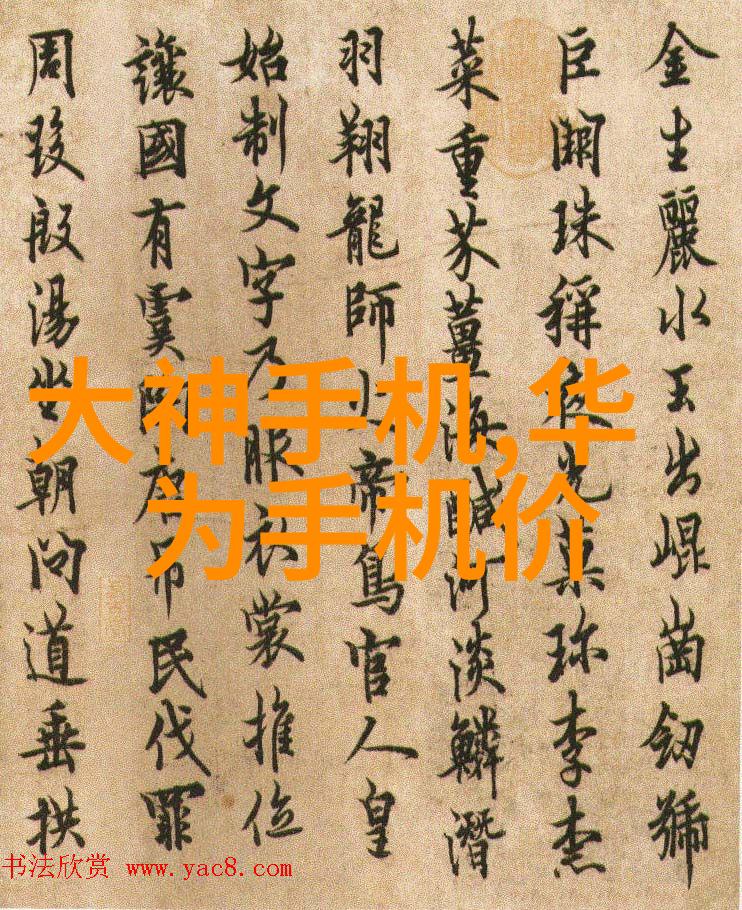 金生麗水玉出崐崗劒號
巨闕珠稱夜光菓珎李柰
菜重芥薑海鹹河淡鱗潛
羽翔龍師火帝鳥官人皇
始制文字乃服衣裳推位
讓國有虞陶唐吊民伐罪
周發殷湯坐朝問道垂拱
大神手机,华
为手机价
书法欣赏 www.yac8.com